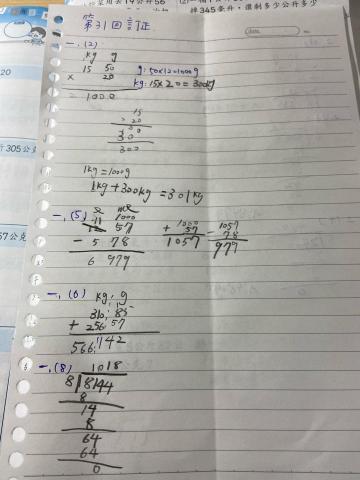 第31回訂正
一、(2)
kg g
15 50
× 20
g: 50×20=1000g
kg: 15×20=300kg
1000
15
× 20
300
1kg=1000g
1kg+300kg=301kg
一、(5)
11 1000
12 57
- 5 78
6 979
1000
+ 57
1057
1057
- 78
979
一、(6)
kg g
310 85
+ 256 57
566 142
一、(8)
1018
8 8144
8
14
8
64
64
0